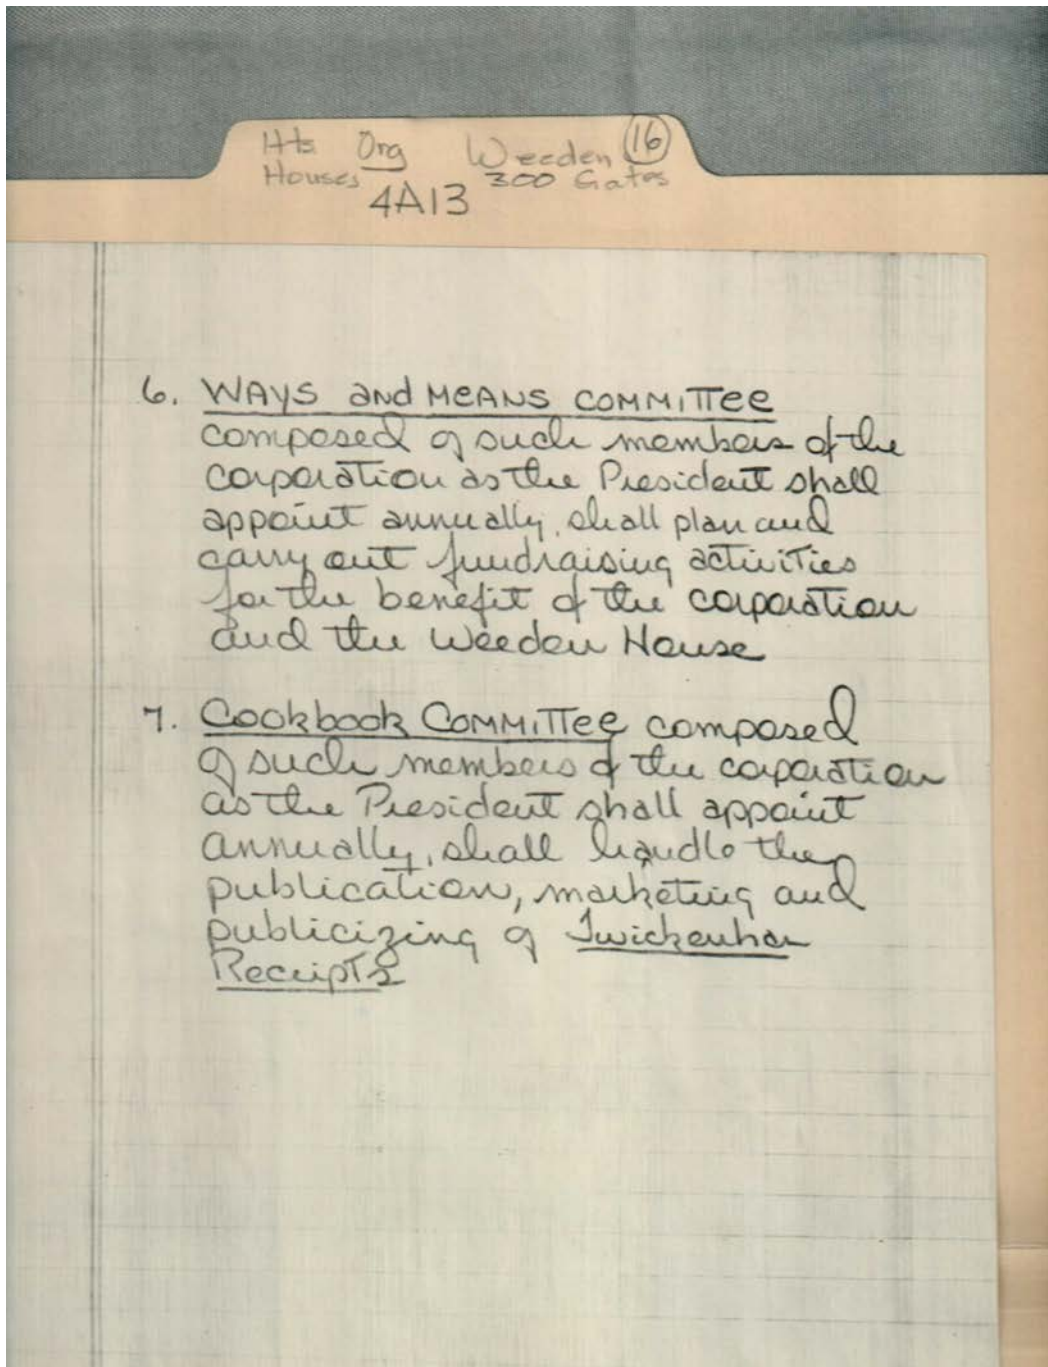 Hts Org Weeden 16
Houses 300 Gates
4A13
6. WAYS and MEANS COMMITTEE
composed of such members of the
corporation as the President shall
appoint annually, shall plan and
carry out fundraising activities
for the benefit of the corporation
and the Weeden House
7. Cookbook COMMITTee composed
of such members of the corporation
as the President shall appoint
annually, shall handle the
publication, marketing and
publicizing of Twickenham
Receipts